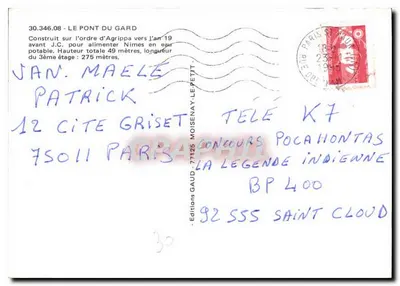 30.346.08 - LE PONT DU GARD
Construit sur l'ordre d'Agrippa vers l'an 19
avant J.C. pour alimenter Nîmes en eau
potable. Hauteur totale 49 mètres, longueur
du 3ème étage : 275 mètres.
VAN. MAELE
PATRICK
12 CITE GRISET
75011 PARIS
- Editions GAUD. 77125 MOISENAY-LE-PETIT -
TÉLÉ K7
CONCOURS POCAHONTAS
LA LEGENDE INDIENNE
BP 400
92555 SAINT CLOUD
30
PARIS